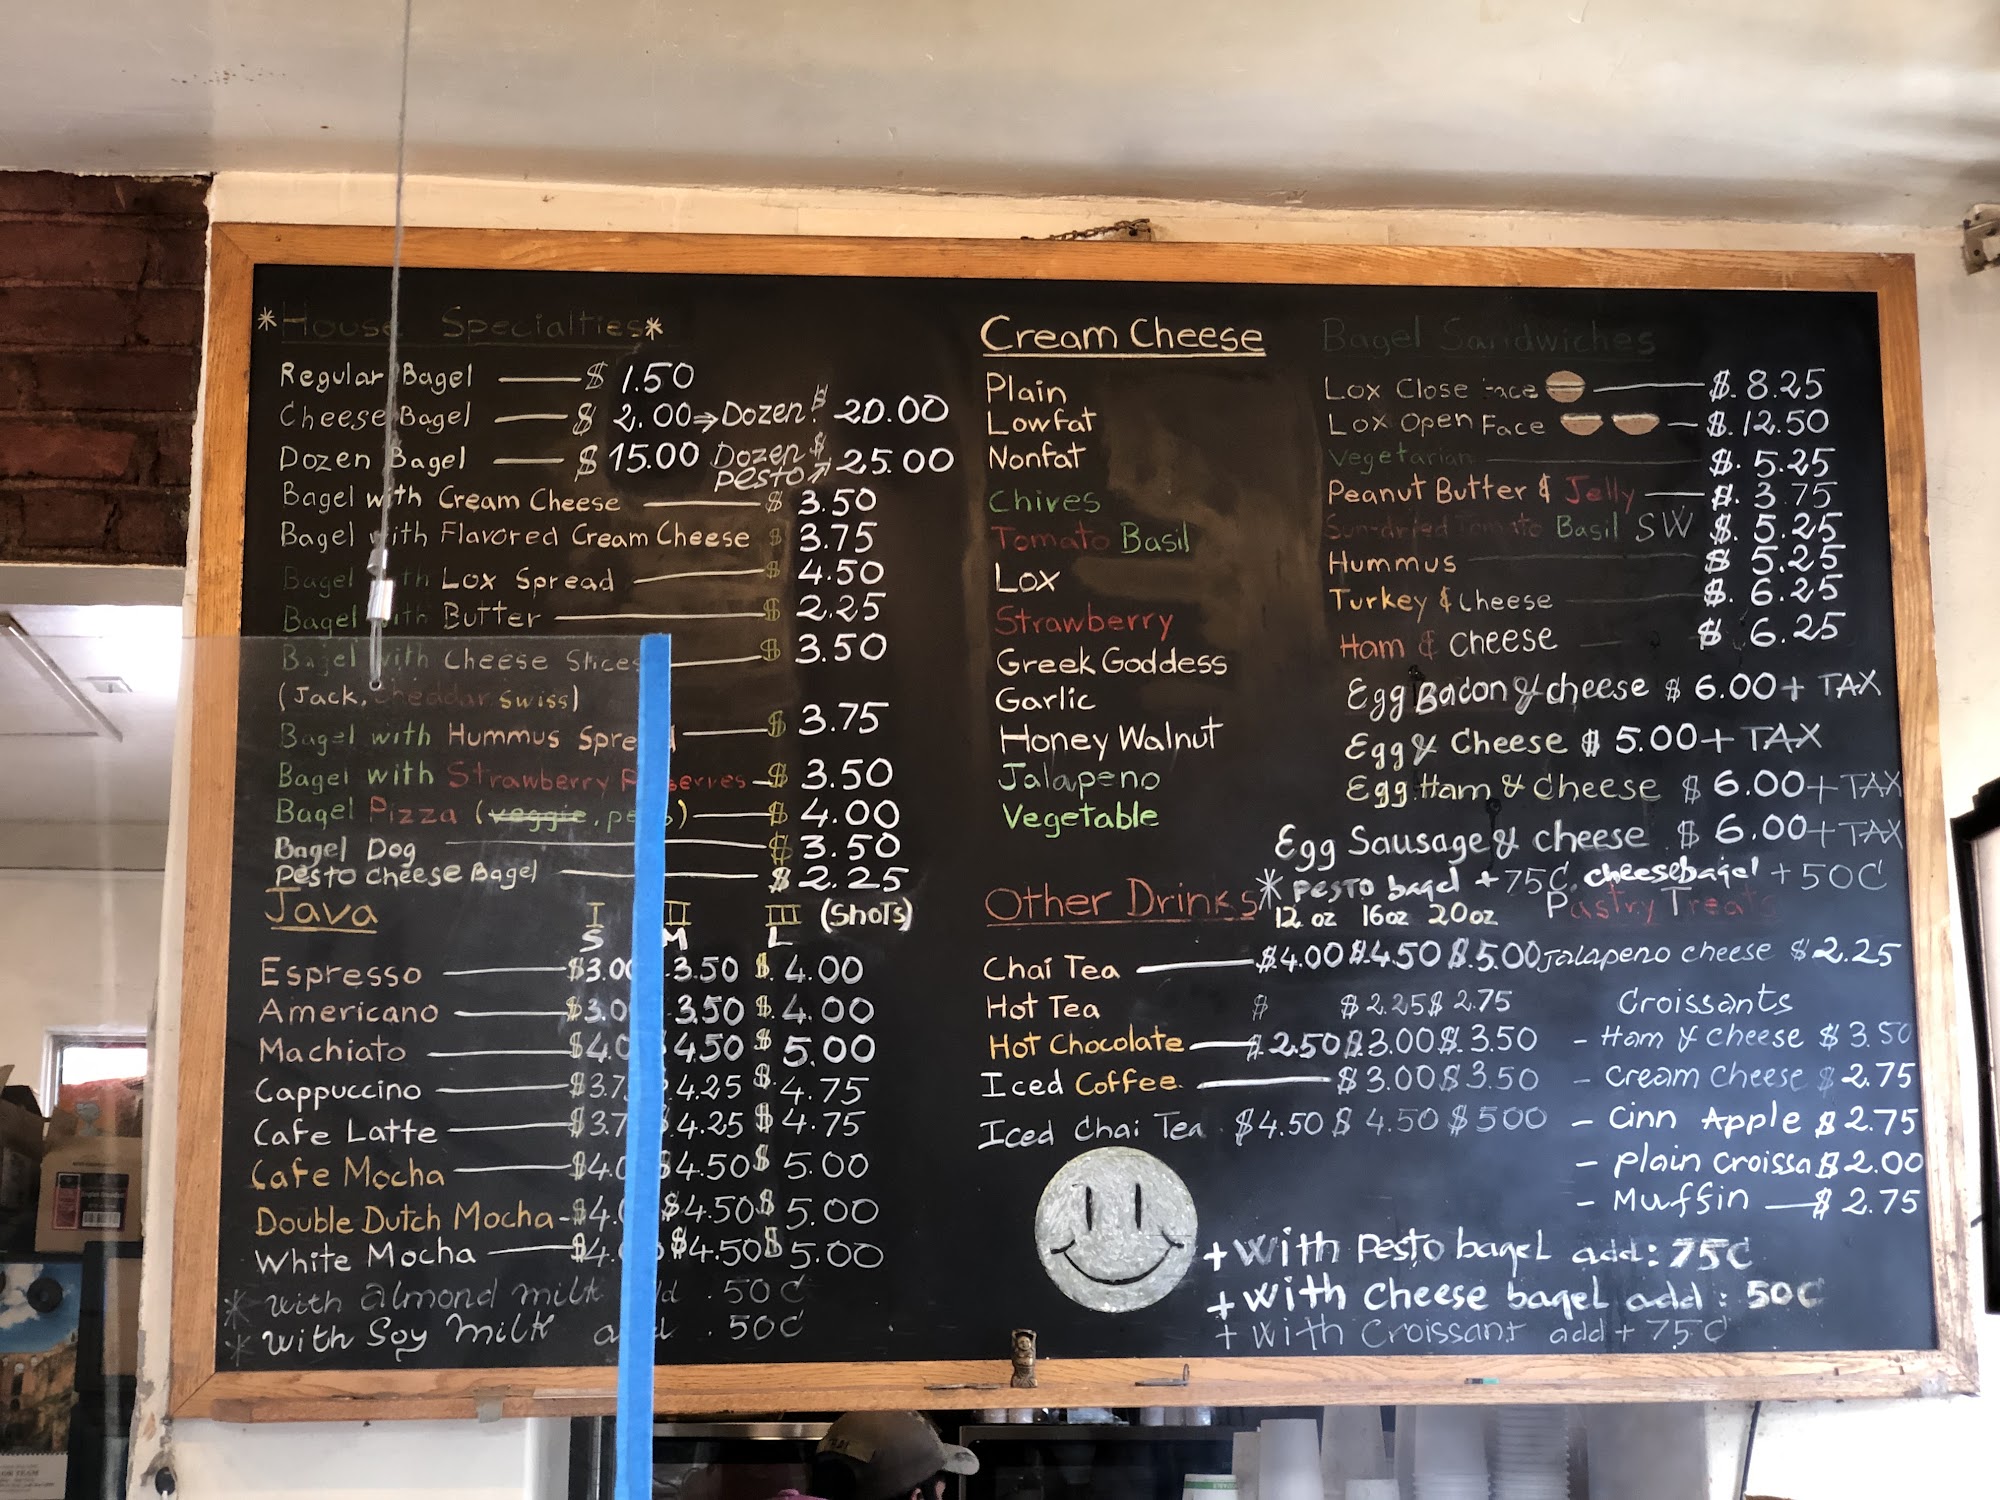 *House Specialties*
Regular Bagel $ 1.50
Cheese Bagel $ 2.00 → Dozen $ 20.00
Dozen Bagel $ 15.00 Dozen pesto $ 25.00
Bagel with Cream Cheese $ 3.50
Bagel with Flavored Cream Cheese $ 3.75
Bagel with Lox Spread $ 4.50
Bagel with Butter $ 2.25
Bagel with Cheese Slices $ 3.50
(Jack, Cheddar, Swiss)
Bagel with Hummus Spre $ 3.75
Bagel with Strawberry P serves $ 3.50
Bagel Pizza (veggie, pe ) $ 4.00
Bagel Dog $ 3.50
Pesto cheese Bagel $ 2.25
Java I II III (Shots)
S M L
Espresso $3.00 3.50 $ 4.00
Americano $3.0 3.50 $ 4.00
Machiato $4.0 4.50 $ 5.00
Cappuccino $3.7 4.25 $ 4.75
Cafe Latte $3.7 4.25 $ 4.75
Cafe Mocha $4.0 $4.50 $ 5.00
Double Dutch Mocha $4. $4.50 $ 5.00
White Mocha $4. $4.50 $ 5.00
* with almond milk .50¢
* with Soy Milk .50¢
Cream Cheese
Plain
Lowfat
Nonfat
Chives
Tomato Basil
Lox
Strawberry
Greek Goddess
Garlic
Honey Walnut
Jalapeno
Vegetable
Bagel Sandwiches
Lox Close Face $. 8.25
Lox Open Face $. 12.50
Vegetarian $. 5.25
Peanut Butter & Jelly $. 3.75
Sun-dried Tomato Basil SW $. 5.25
Hummus $ 5.25
Turkey & Cheese $. 6.25
Ham & Cheese $ 6.25
Egg Bacon & cheese $ 6.00 + TAX
Egg & Cheese $ 5.00 + TAX
Egg Ham & Cheese $ 6.00 + TAX
Egg Sausage & cheese $ 6.00 + TAX
* pesto bagel + 75¢, cheesebagel + 50¢
Other Drinks 12 oz 16oz 20oz
Chai Tea $4.00 $4.50 $5.00
Hot Tea $ $2.25 $ 2.75
Hot Chocolate $2.50 $3.00 $. 3.50
Iced Coffee $ 3.00 $ 3.50
Iced Chai Tea $4.50 $ 4.50 $ 500
Pastry Treats
Jalapeno cheese $2.25
Croissants
- Ham & Cheese $ 3.50
- Cream Cheese $ 2.75
- Cinn Apple $ 2.75
- Plain Croissa $2.00
- Muffin $ 2.75
+ With Pesto bagel add: 75¢
+ With Cheese bagel add: 50¢
+ With Croissant add + 75¢